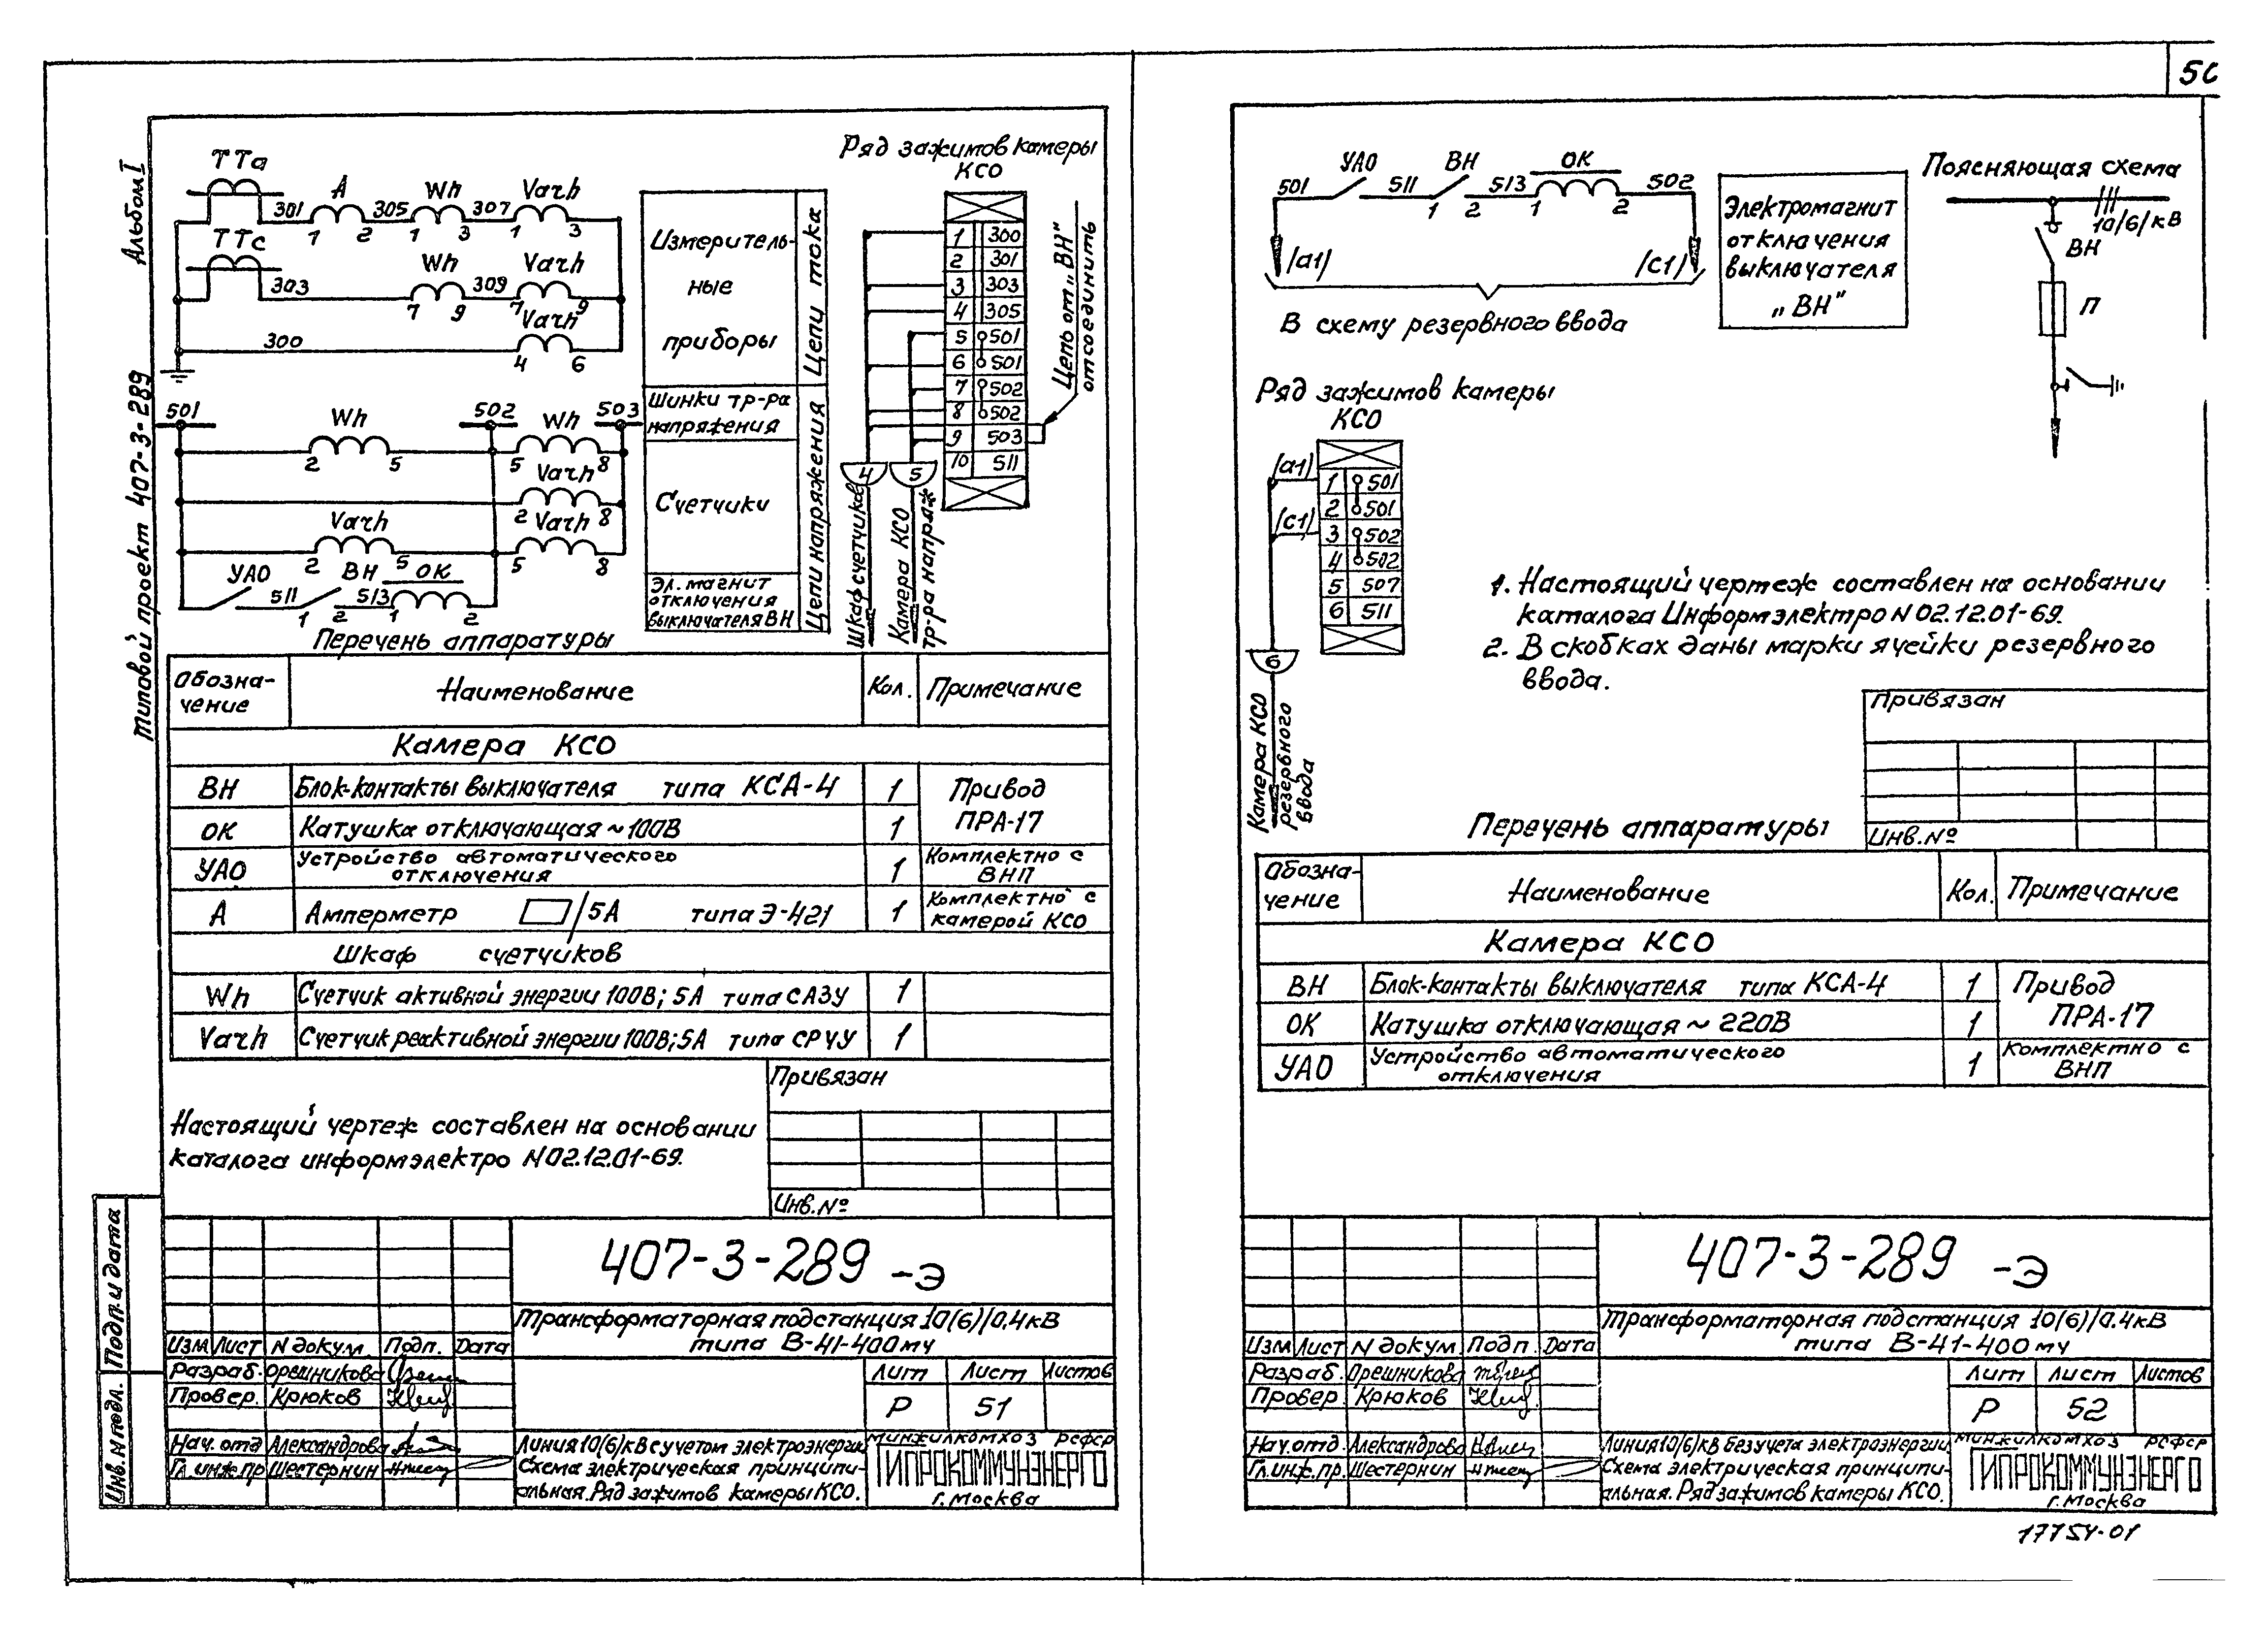 50
Альбом I
Типовой проект 407-3-289
ТТа
301 А 305 Wh 307 Varh
1 2 1 3 1 3
ТТс
303 Wh 309 Varh
7 9 7 9
Varh
300
4 6
501 502 503
Wh Wh
2 5 5 8
Varh
2 8
Varh Varh
2 5 5 8
УАО 511 ВН 513 ОК
1 2 1 2
Измеритель-
ные
приборы
Цепи тока
Шинки тр-ра
напряжения
Счетчики
Эл. магнит
отключения
выключателя ВН
Цепи напряжения
Ряд зажимов камеры
КСО
1 300
2 301
3 303
4 305
5 501
6 501
7 502
8 502
9 503
10 511
Цепь от „ВН"
отсоединить
4 5
Шкаф счетчиков
Камера КСО
тр-ра напряж
Перечень аппаратуры
Обозна-
чение Наименование Кол. Примечание
Камера КСО
ВН Блок-контакты выключателя типа КСА-4 1 Привод
ОК Катушка отключающая ~100В 1 ПРА-17
УАО Устройство автоматического
отключения 1 Комплектно с
ВНП
А Амперметр /5А типа Э-421 1 Комплектно с
камерой КСО
Шкаф счетчиков
Wh Счетчик активной энергии 100В; 5А типа САЗУ 1
Varh Счетчик реактивной энергии 100В; 5А типа СР4У 1
Настоящий чертеж составлен на основании
каталога информэлектро N 02.12.01-69.
Привязан
Инв. №
Подп. и дата
Инв. N подл.
407-3-289 -Э
Трансформаторная подстанция 10(6)/0,4кВ
типа В-41-400му
Изм Лист N докум. Подп. Дата
Разраб. Орешникова
Провер. Крюков
Нач. отд Александрова
Гл. инж. пр Шестернин
Лит Лист Листов
Р 51
Линия 10(6)кВ с учетом электроэнергии
Схема электрическая принципи-
альная. Ряд зажимов камеры КСО.
Минжилкомхоз РСФСР
ГИПРОКОММУНЭНЕРГО
г. Москва
501 УАО 511 ВН 513 ОК 502
1 2 1 2
/а1/ /с1/
В схему резервного ввода
Электромагнит
отключения
выключателя
„ВН"
Поясняющая схема
10/6/кВ
ВН
П
Ряд зажимов камеры
КСО
/а1/
/с1/
1 501
2 501
3 502
4 502
5 507
6 511
6
Камера КСО
резервного
ввода
1. Настоящий чертеж составлен на основании
каталога Информэлектро N 02.12.01-69.
2. В скобках даны марки ячейки резервного
ввода.
Привязан
Инв. №
Перечень аппаратуры
Обозна-
чение Наименование Кол. Примечание
Камера КСО
ВН Блок-контакты выключателя типа КСА-4 1 Привод
ОК Катушка отключающая ~ 220В 1 ПРА-17
УАО Устройство автоматического
отключения 1 Комплектно с
ВНП
407-3-289 -Э
Трансформаторная подстанция 10(6)/0.4кВ
типа В-41-400му
Изм Лист N докум Подп. Дата
Разраб. Орешникова
Провер. Крюков
Нач. отд. Александрова
Гл. инж. пр. Шестернин
Лит Лист Листов
Р 52
Линия 10/6/кВ без учета электроэнергии
Схема электрическая принципи-
альная. Ряд зажимов камеры КСО.
Минжилкомхоз РСФСР
ГИПРОКОММУНЭНЕРГО
г. Москва
17754-01